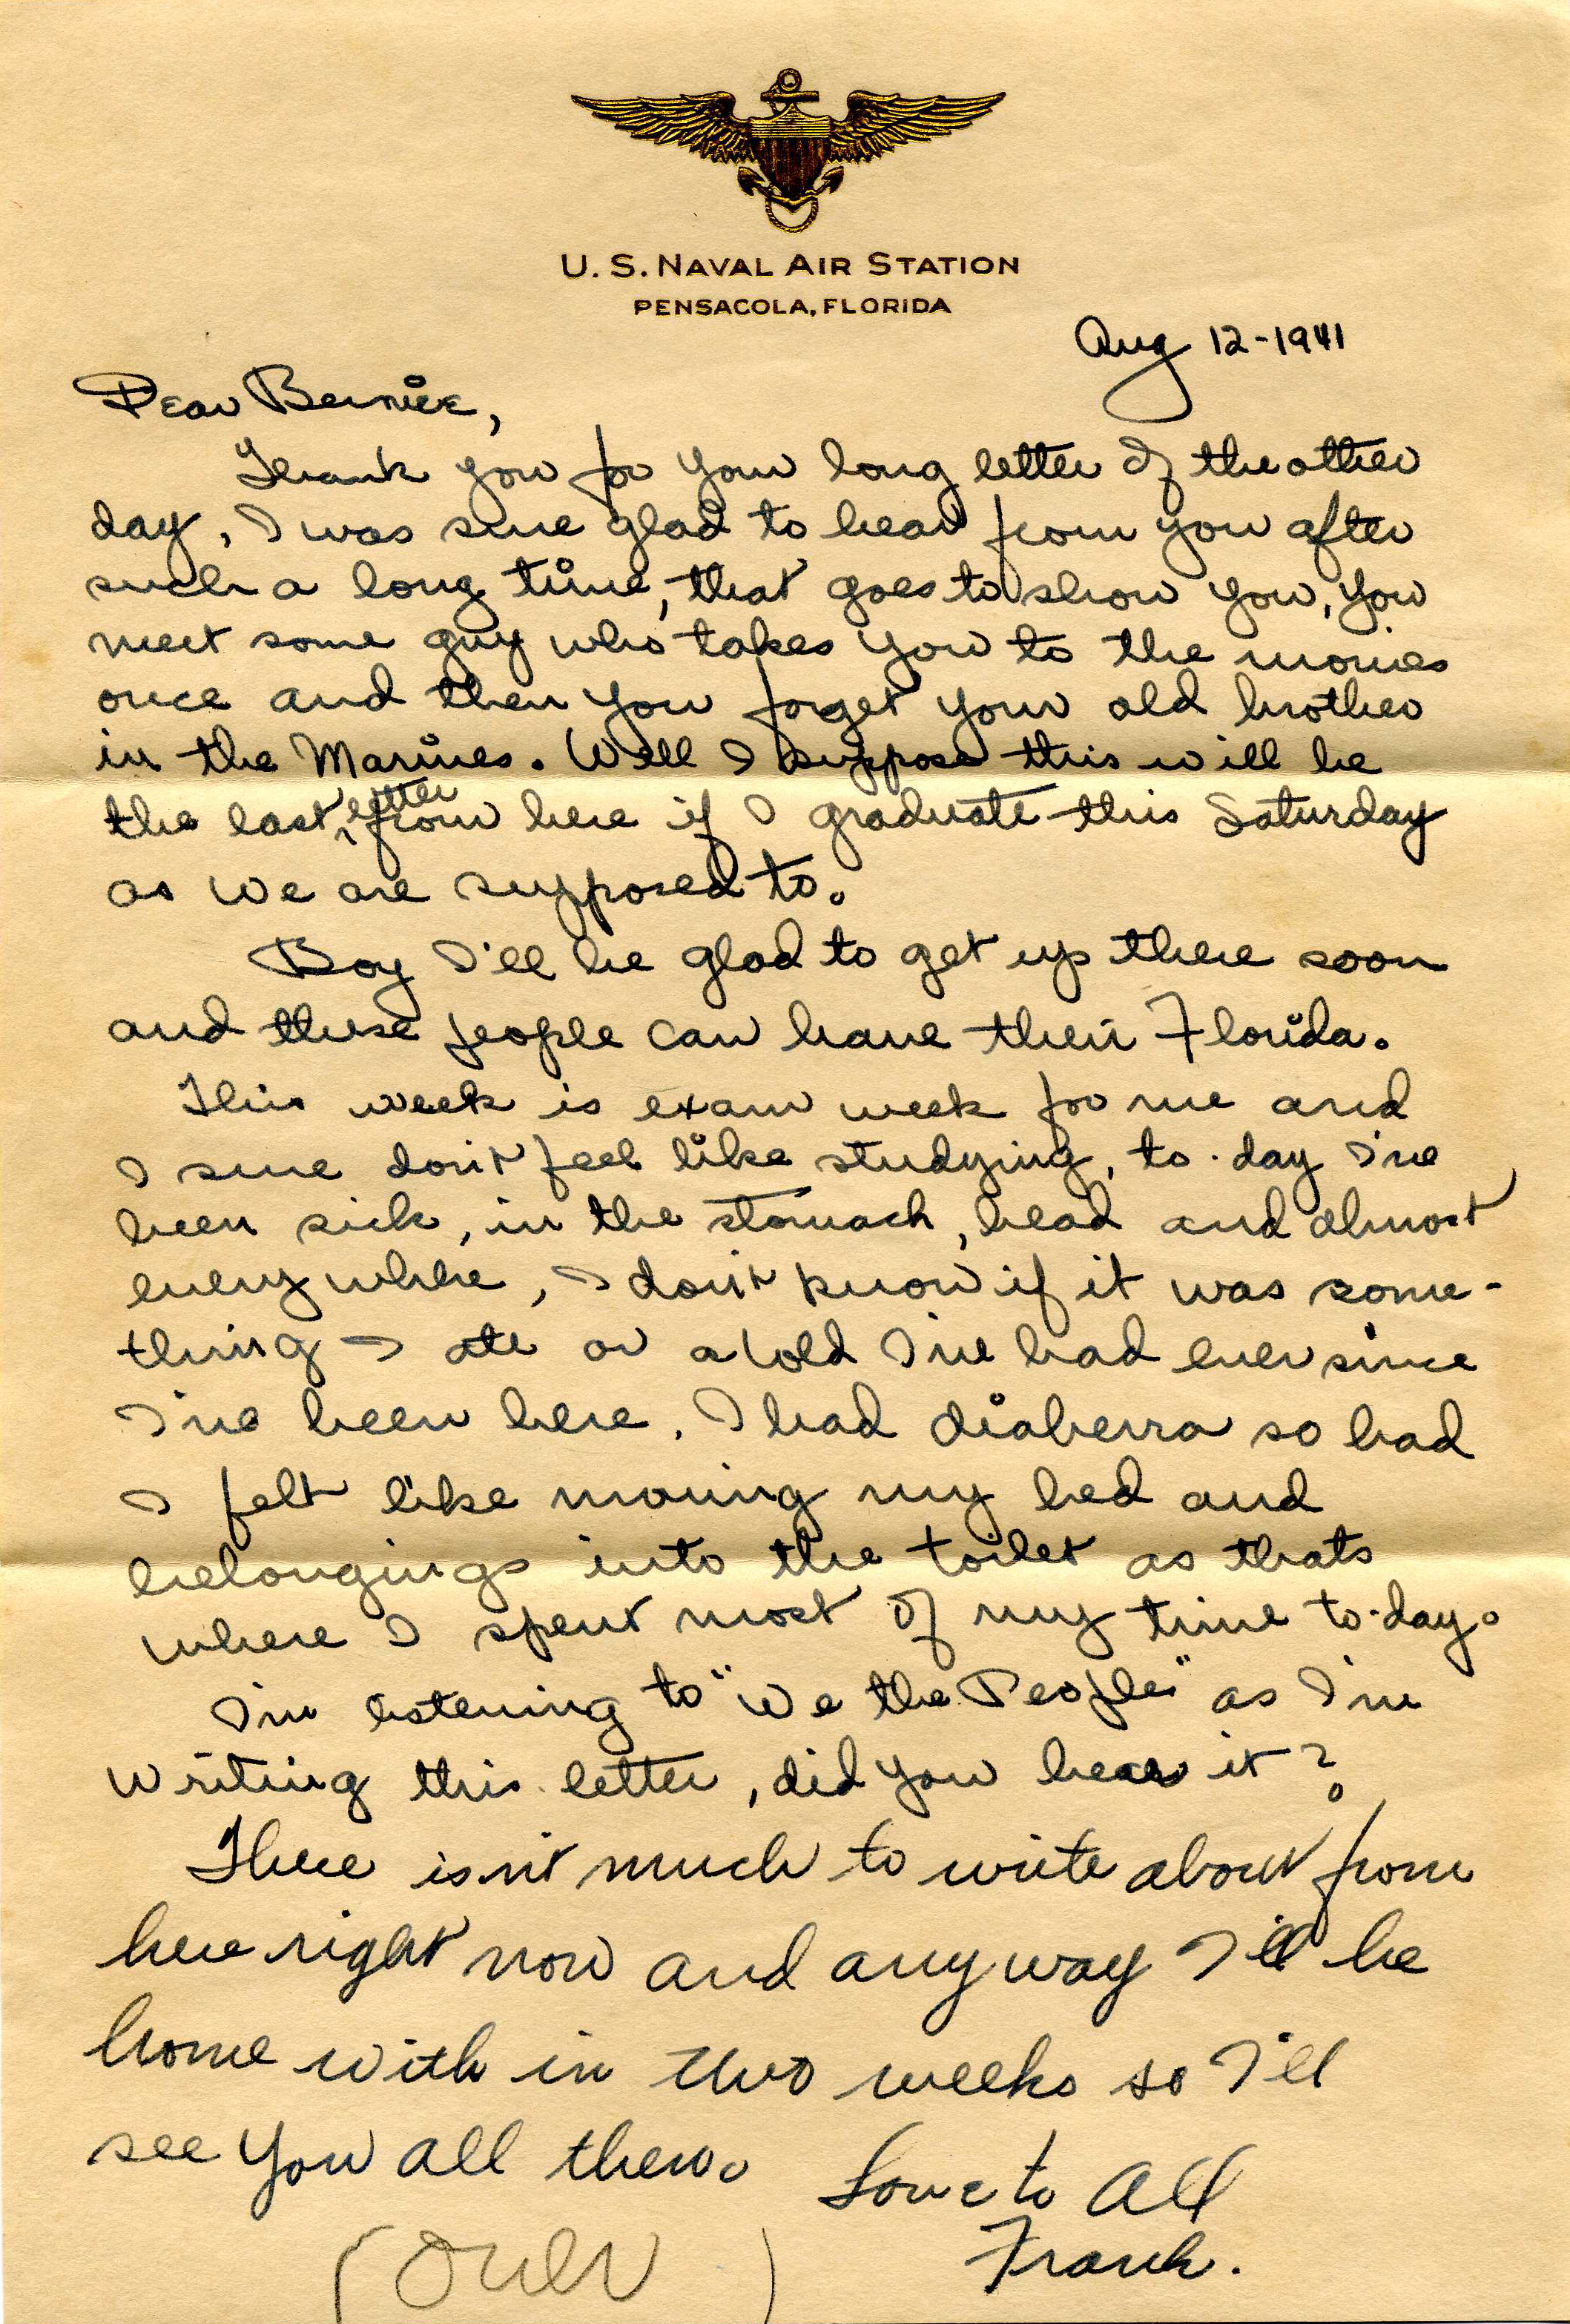 U. S. NAVAL AIR STATION
PENSACOLA, FLORIDA
Aug 12-1941
Dear Bernice,
Thank you for your long letter of the other
day, I was sure glad to hear from you after
such a long time, that goes to show you, you
meet some guy who takes you to the movies
once and then you forget your old brother
in the Marines. Well I suppose this will be
the last letter from here if I graduate this Saturday
as we are supposed to.
Boy I'll be glad to get up there soon
and these people can have their Florida.
This week is exam week for me and
I sure don't feel like studying, to-day I've
been sick, in the stomach, head and almost
everywhere, I don't know if it was some-
thing I ate or a cold I've had ever since
I've been here. I had diaherra so bad
I felt like moving my bed and
belongings into the toilet as thats
where I spent most of my time to-day.
I'm listening to "We the People" as I'm
writing this letter, did you hear it?
There isn't much to write about from
here right now and anyway I'll be
home with in two weeks so I'll
see you all then. Love to All
Frank.
(Over)